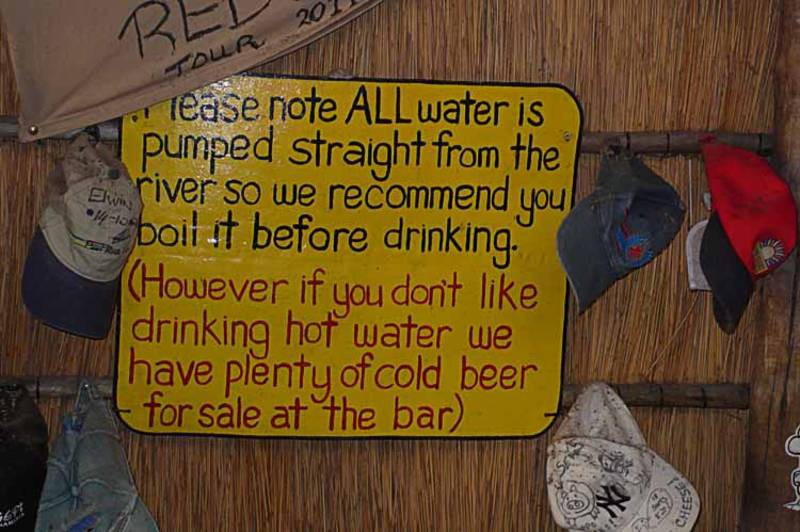 RED
TOUR 2011
Please note ALL water is
pumped straight from the
river so we recommend you
boil it before drinking.
(However if you don't like
drinking hot water we
have plenty of cold beer
for sale at the bar)
Elwin
14-10
NY
CHEESE!